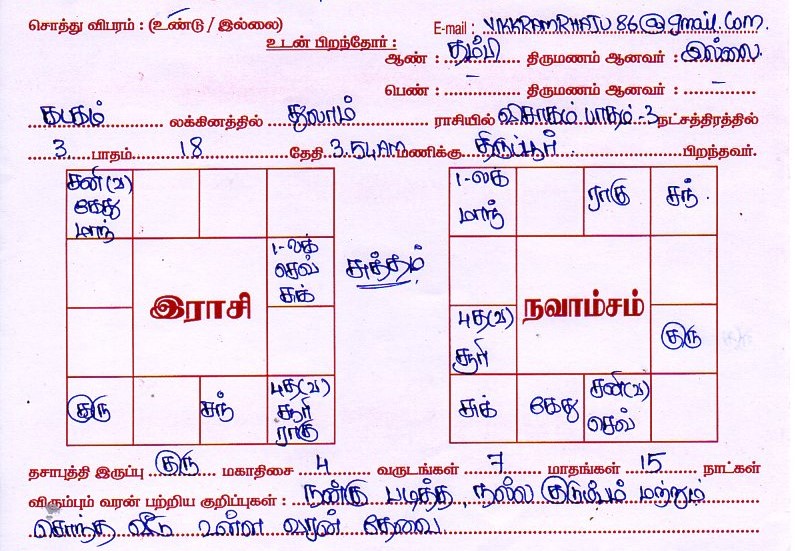 சொத்து விபரம் : (உண்டு / இல்லை) E-mail : VIKKRAMRHATU86@gmail.com.
உடன் பிறந்தோர் :
ஆண் : தம்பி திருமணம் ஆனவர் : இல்லை.
பெண் : – திருமணம் ஆனவர் : –
கடகம் லக்கினத்தில் துலாம் ராசியில் விசாகம் பாதம் -3 நட்சத்திரத்தில்
3 பாதம் 18 தேதி 3.54AM மணிக்கு திருப்பூர் பிறந்தவர்.
சனி(வ)
கேது
மாந்
1-லக்
செவ்
சுக்
இராசி
குரு
சந்
புத(வ)
சூரி
ராகு
சுத்தம்
1-லக்
மாந்
ராகு
சந்
புத(வ)
சூரி
நவாம்சம்
குரு
சுக்
கேது
சனி(வ)
செவ்
தசாபுத்தி இருப்பு குரு மகாதிசை 4 வருடங்கள் 7 மாதங்கள் 15 நாட்கள்
விரும்பும் வரன் பற்றிய குறிப்புகள் : நன்கு படித்த, நல்ல குடும்பம் மற்றும்
சொந்த வீடு உள்ள வரன் தேவை